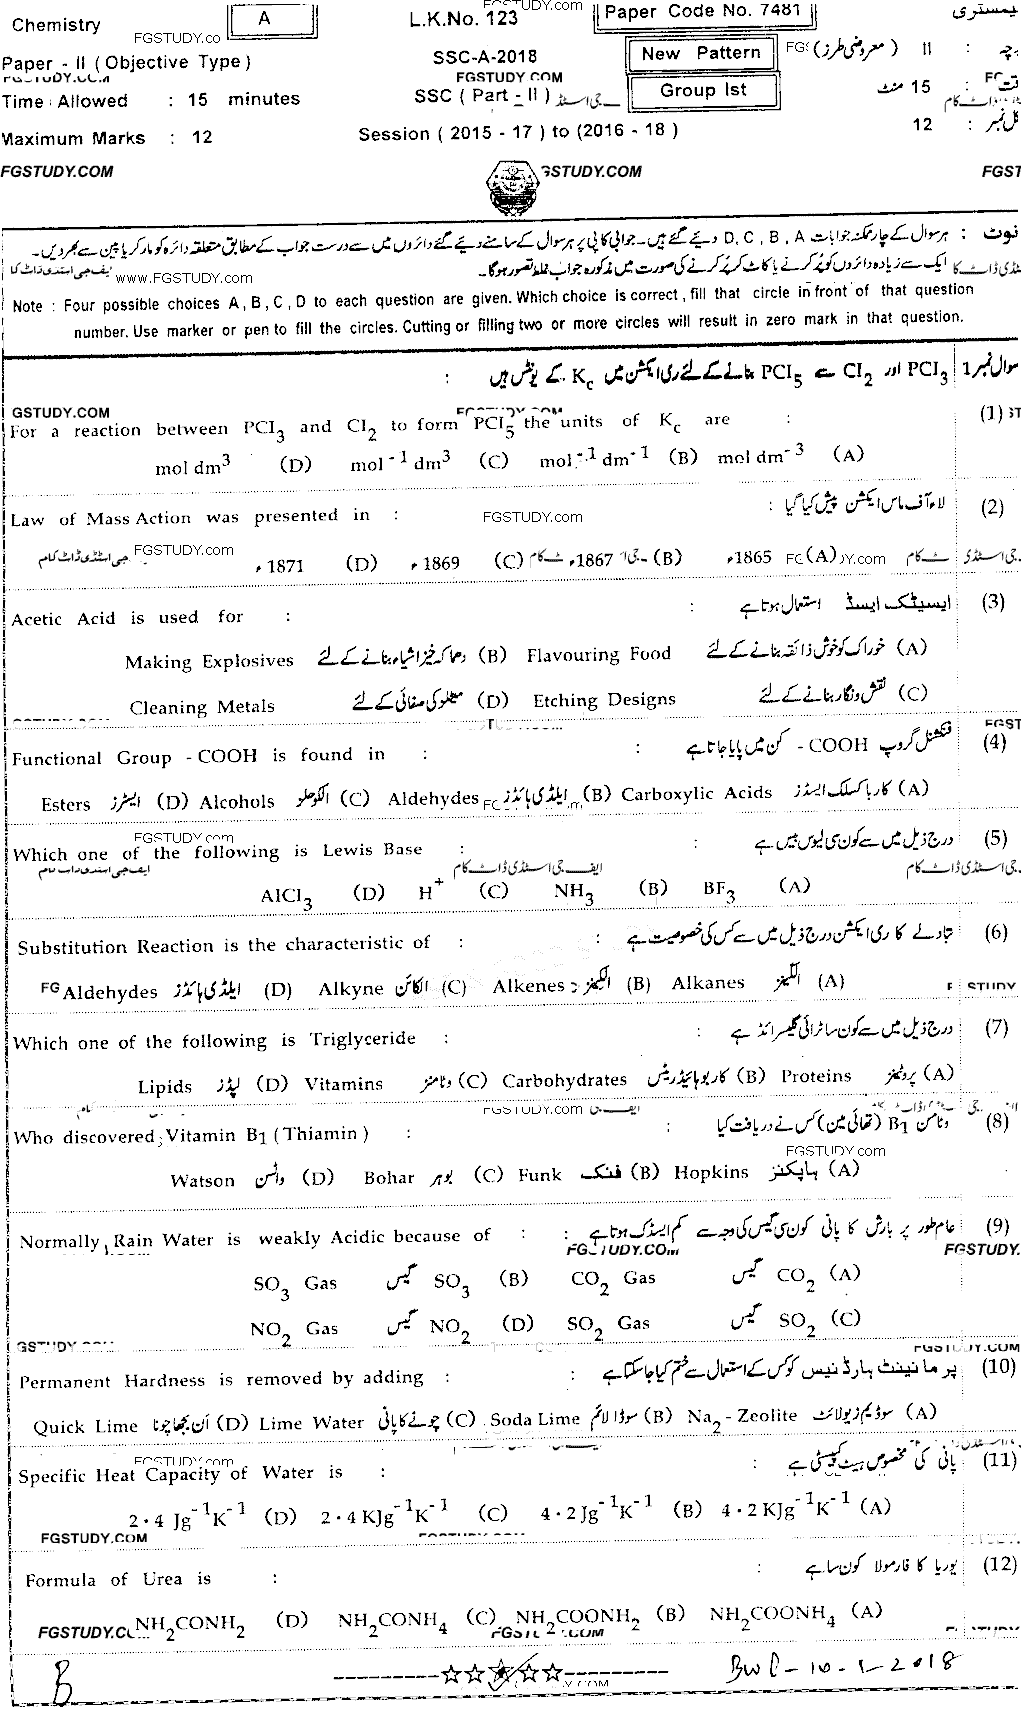 Chemistry A L.K.No. 123 Paper Code No. 7481
FGSTUDY.com
FGSTUDY.co
Paper - II (Objective Type) SSC-A-2018 New Pattern (معروضی طرز) II :
FGSTUDY.COM
Time Allowed : 15 minutes SSC (Part - II) جی اسٹڈی Group Ist 15 منٹ :
Maximum Marks : 12 Session (2015 - 17) to (2016 - 18) کل نمبر : 12
FGSTUDY.COM GSTUDY.COM FGST
نوٹ : ہر سوال کے چار ممکنہ جوابات D, C, B, A دیئے گئے ہیں۔ جوابی کاپی پر ہر سوال کے سامنے دیئے گئے دائروں میں سے درست جواب کے مطابق متعلقہ دائرہ کو مارکر یا پین سے بھر دیں۔
ایک سے زیادہ دائروں کو پُر کرنے یا کاٹ کر پُر کرنے کی صورت میں مذکورہ جواب غلط تصور ہوگا۔
www.FGSTUDY.com
Note : Four possible choices A, B, C, D to each question are given. Which choice is correct, fill that circle in front of that question
number. Use marker or pen to fill the circles. Cutting or filling two or more circles will result in zero mark in that question.
سوال نمبر 1 PCl3 اور Cl2 سے PCl5 بنانے کے لئے ری ایکشن میں Kc کے یونٹس ہیں :
GSTUDY.COM
For a reaction between PCl3 and Cl2 to form PCl5 the units of Kc are : (1)
mol dm3 (D) mol-1 dm3 (C) mol-1 dm-1 (B) mol dm-3 (A)
لاء آف ماس ایکشن پیش کیا گیا : (2)
Law of Mass Action was presented in : FGSTUDY.com
1871ء (D) 1869ء (C) 1867ء (B) 1865ء (A)
FGSTUDY.com
ایسیٹک ایسڈ استعمال ہوتا ہے : (3)
Acetic Acid is used for :
Making Explosives دھماکہ خیز اشیاء بنانے کے لئے (B) Flavouring Food خوراک کو خوش ذائقہ بنانے کے لئے (A)
Cleaning Metals میٹلز کی صفائی کے لئے (D) Etching Designs نقش و نگار بنانے کے لئے (C)
فنکشنل گروپ COOH - کن میں پایا جاتا ہے : (4)
Functional Group - COOH is found in :
Esters ایسٹرز (D) Alcohols الکوحلز (C) Aldehydes ایلڈی ہائڈز (B) Carboxylic Acids کاربا کسلک ایسڈز (A)
FGSTUDY.com
درج ذیل میں سے کون سی لیوس بیس ہے : (5)
Which one of the following is Lewis Base :
ایف جی اسٹڈی ڈاٹ کام
AlCl3 (D) H+ (C) NH3 (B) BF3 (A)
تبادلے کا ری ایکشن درج ذیل میں سے کس کی خصوصیت ہے : (6)
Substitution Reaction is the characteristic of :
Aldehydes ایلڈی ہائڈز (D) Alkyne الکائن (C) Alkenes الکینز (B) Alkanes الکینز (A)
درج ذیل میں سے کون سا ٹرائی گلیسرائڈ ہے : (7)
Which one of the following is Triglyceride :
Lipids لپڈز (D) Vitamins وٹامنز (C) Carbohydrates کاربوہائیڈریٹس (B) Proteins پروٹینز (A)
FGSTUDY.com
وٹامن B1 (تھائی مین) کس نے دریافت کیا : (8)
Who discovered Vitamin B1 (Thiamin) :
FGSTUDY.com
Watson واٹسن (D) Bohar بوہر (C) Funk فنک (B) Hopkins ہاپکنز (A)
عام طور پر بارش کا پانی کون سی گیس کی وجہ سے کم ایسڈک ہوتا ہے : (9)
Normally Rain Water is weakly Acidic because of :
FGSTUDY.COM FGSTUDY.
SO3 Gas گیس SO3 (B) CO2 Gas گیس CO2 (A)
NO2 Gas گیس NO2 (D) SO2 Gas گیس SO2 (C)
پرمانینٹ ہارڈنیس کو کس کے استعمال سے ختم کیا جاسکتا ہے : (10)
Permanent Hardness is removed by adding :
Quick Lime اَن بجھا چونا (D) Lime Water چونے کا پانی (C) Soda Lime سوڈا لائم (B) Na2 - Zeolite سوڈیم زیولائٹ (A)
پانی کی مخصوص ہیٹ کپیسٹی ہے : (11)
FGSTUDY.com
Specific Heat Capacity of Water is :
2.4 Jg-1K-1 (D) 2.4 KJg-1K-1 (C) 4.2 Jg-1K-1 (B) 4.2 KJg-1K-1 (A)
FGSTUDY.COM
یوریا کا فارمولا کون سا ہے : (12)
Formula of Urea is :
NH2CONH2 (D) NH2CONH4 (C) NH2COONH2 (B) NH2COONH4 (A)
B BWP-10-1-2018